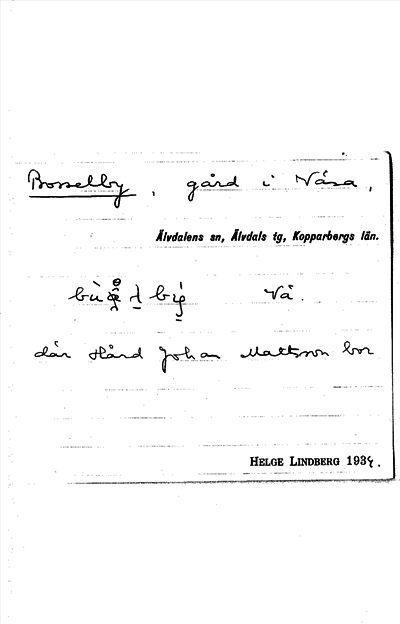 Bosselby, gård i Våsa,
Älvdalens sn, Älvdals tg, Kopparbergs län.
Vå.
där Hård Johan Mattsson bor
HELGE LINDBERG 1934.